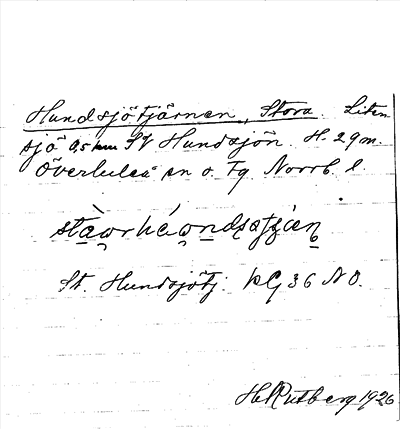 Hundsjötjärnen, Stora. Liten
sjö 0,5 km SV Hundsjön. H. 29 m.
Överluleå sn o. Tg Norrb. l.
St. Hundsjötj. KG 36 NO.
H. Rutberg 1926